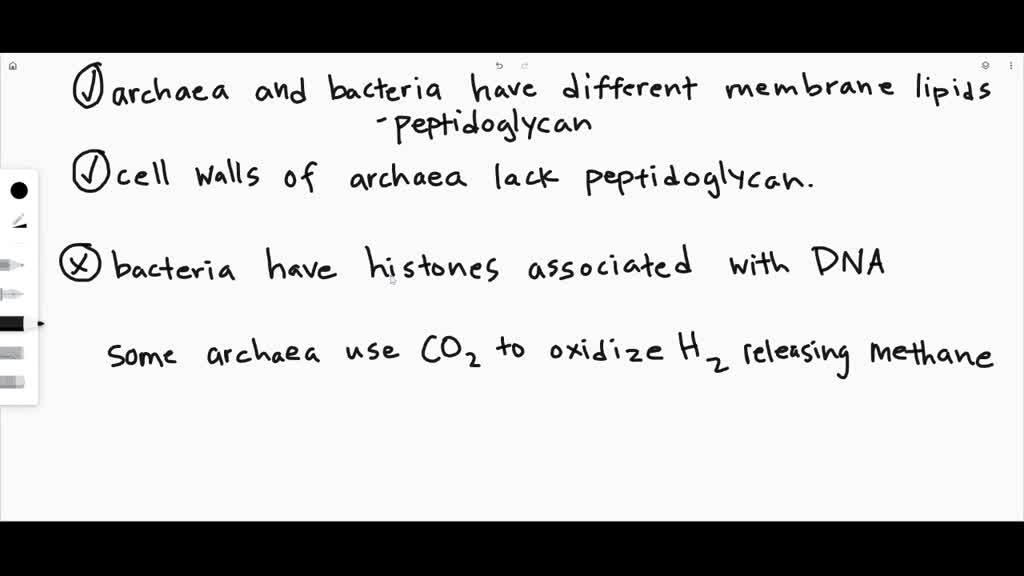 ✓ archaea and bacteria have different membrane lipids
- peptidoglycan
✓ cell walls of archaea lack peptidoglycan.
x bacteria have histones associated with DNA
some archaea use CO2 to oxidize H2 releasing methane